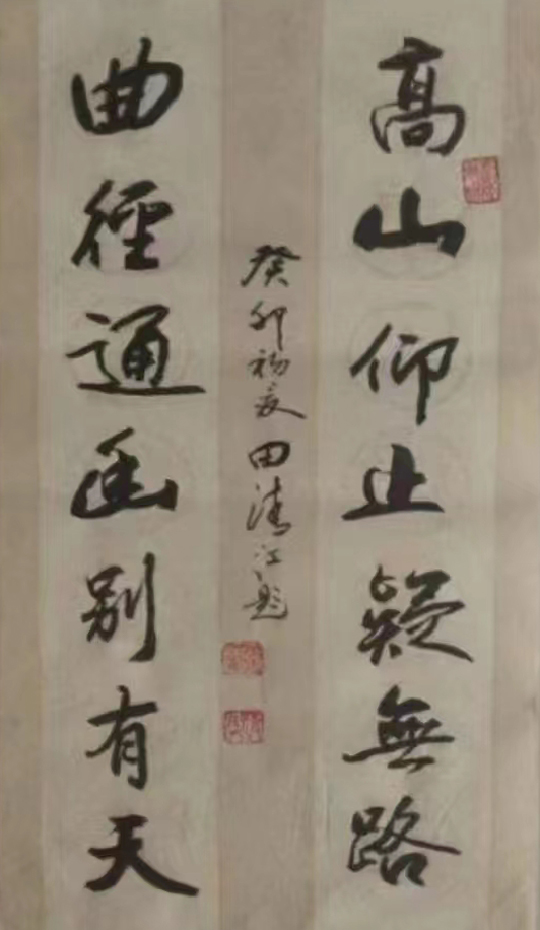 高山仰止疑無路
曲徑通幽别有天
癸卯初夏田清江題